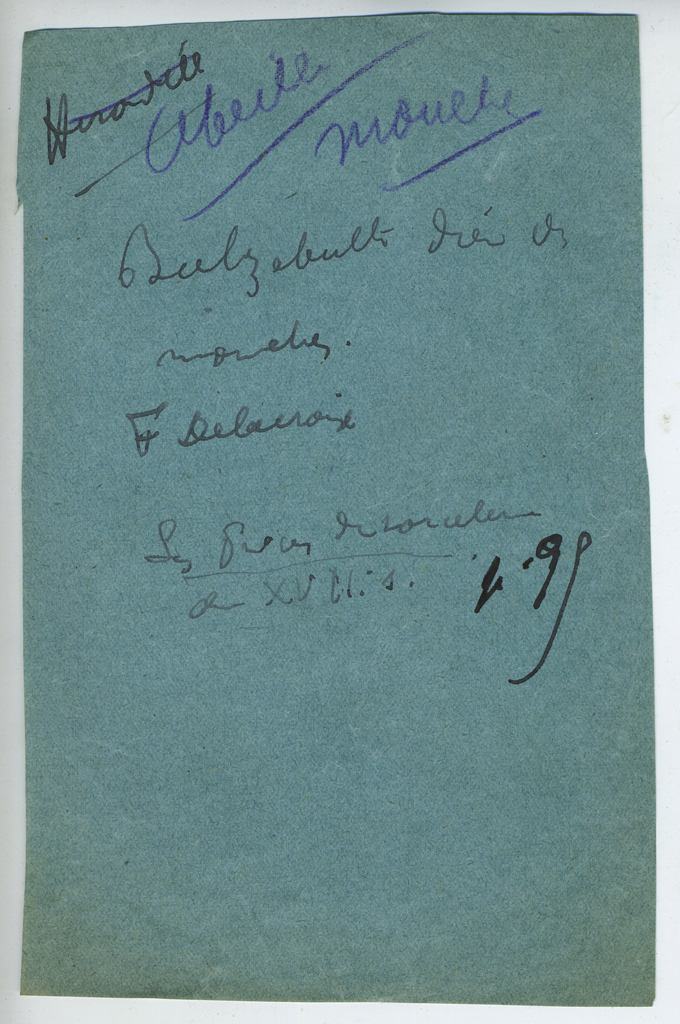 Hérédité
Abeille
mouche
Beelzebutt dieu des
mouches.
F Delacroix
Les procès de sorcellerie
au XVII. s.
p. 99